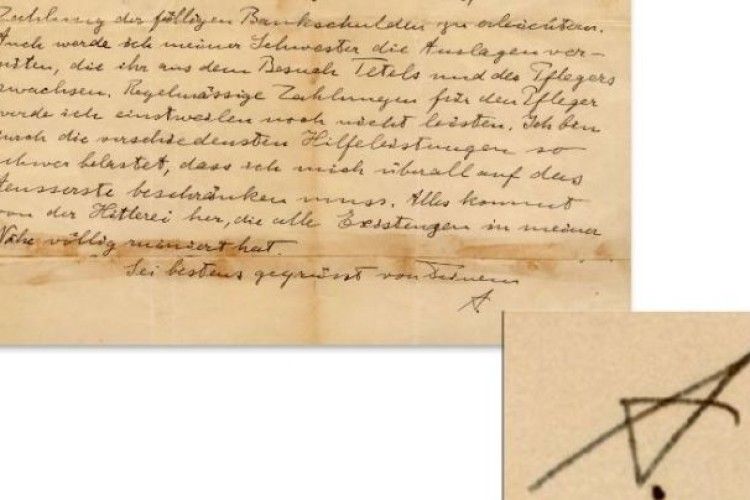 Zahlung der fälligen Bankschulden zu erleichtern.
Auch werde ich meiner Schwester die Auslagen ver-
güten, die ihr aus dem Besuch Tetels und des Pflegers
erwachsen. Regelmässige Zahlungen für den Pfleger
werde ich einstweilen noch nicht leisten. Ich bin
durch die verschiedensten Hilfeleistungen so
schwer belastet, dass ich mich überall auf das
Äusserste beschränken muss. Alles kommt
von der Hitlerei her, die alle Existenzen in meiner
Nähe völlig ruiniert hat.
Sei bestens gegrüsst von Deinem
A
A